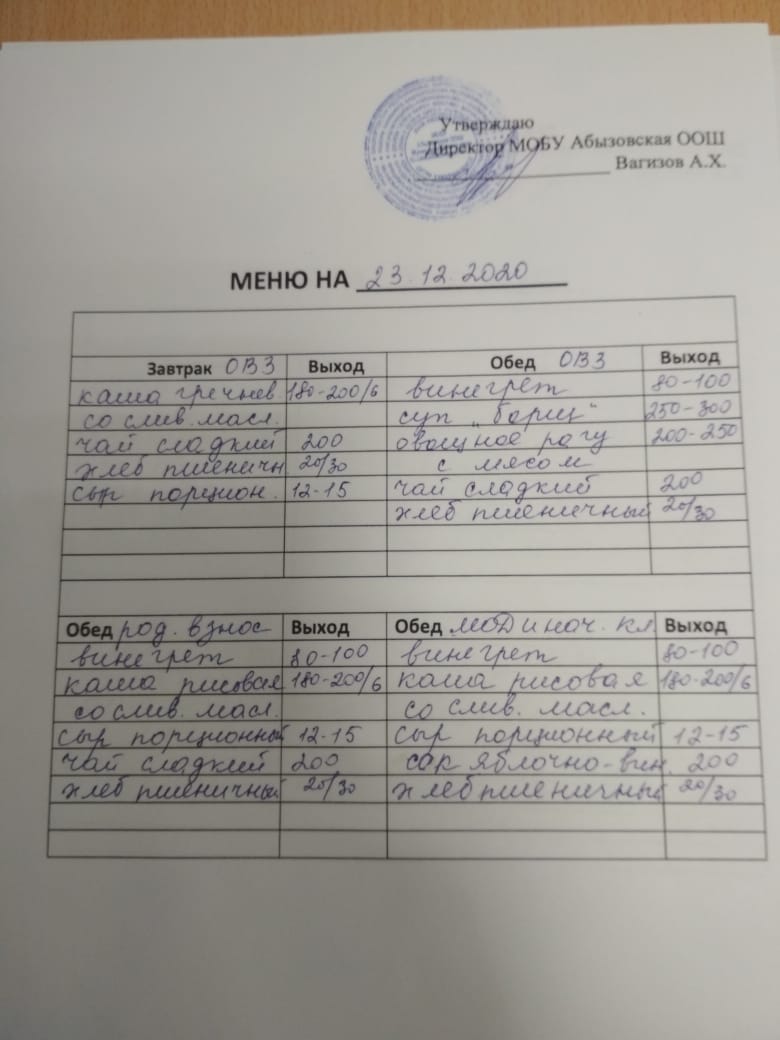 Утверждаю
Директор МОБУ Абызовская ООШ
Вагизов А.Х.
МЕНЮ НА 23.12.2020
Завтрак ОВЗ Выход Обед ОВЗ Выход
каша гречнев. 180-200/6 винегрет 80-100
со слив. масл. суп „борщ" 250-300
чай сладкий 200 овощное рагу 200-250
хлеб пшеничн 20/30 с мясом
сыр порцион. 12-15 чай сладкий 200
хлеб пшеничный 20/30
Обед род. взнос Выход Обед МОД и нач. кл. Выход
винегрет 80-100 винегрет 80-100
каша рисовая 180-200/6 каша рисовая 180-200/6
со слив. масл. со слив. масл.
сыр порционный 12-15 сыр порционный 12-15
чай сладкий 200 сок яблочно-вин. 200
хлеб пшеничный 20/30 хлеб пшеничный 20/30